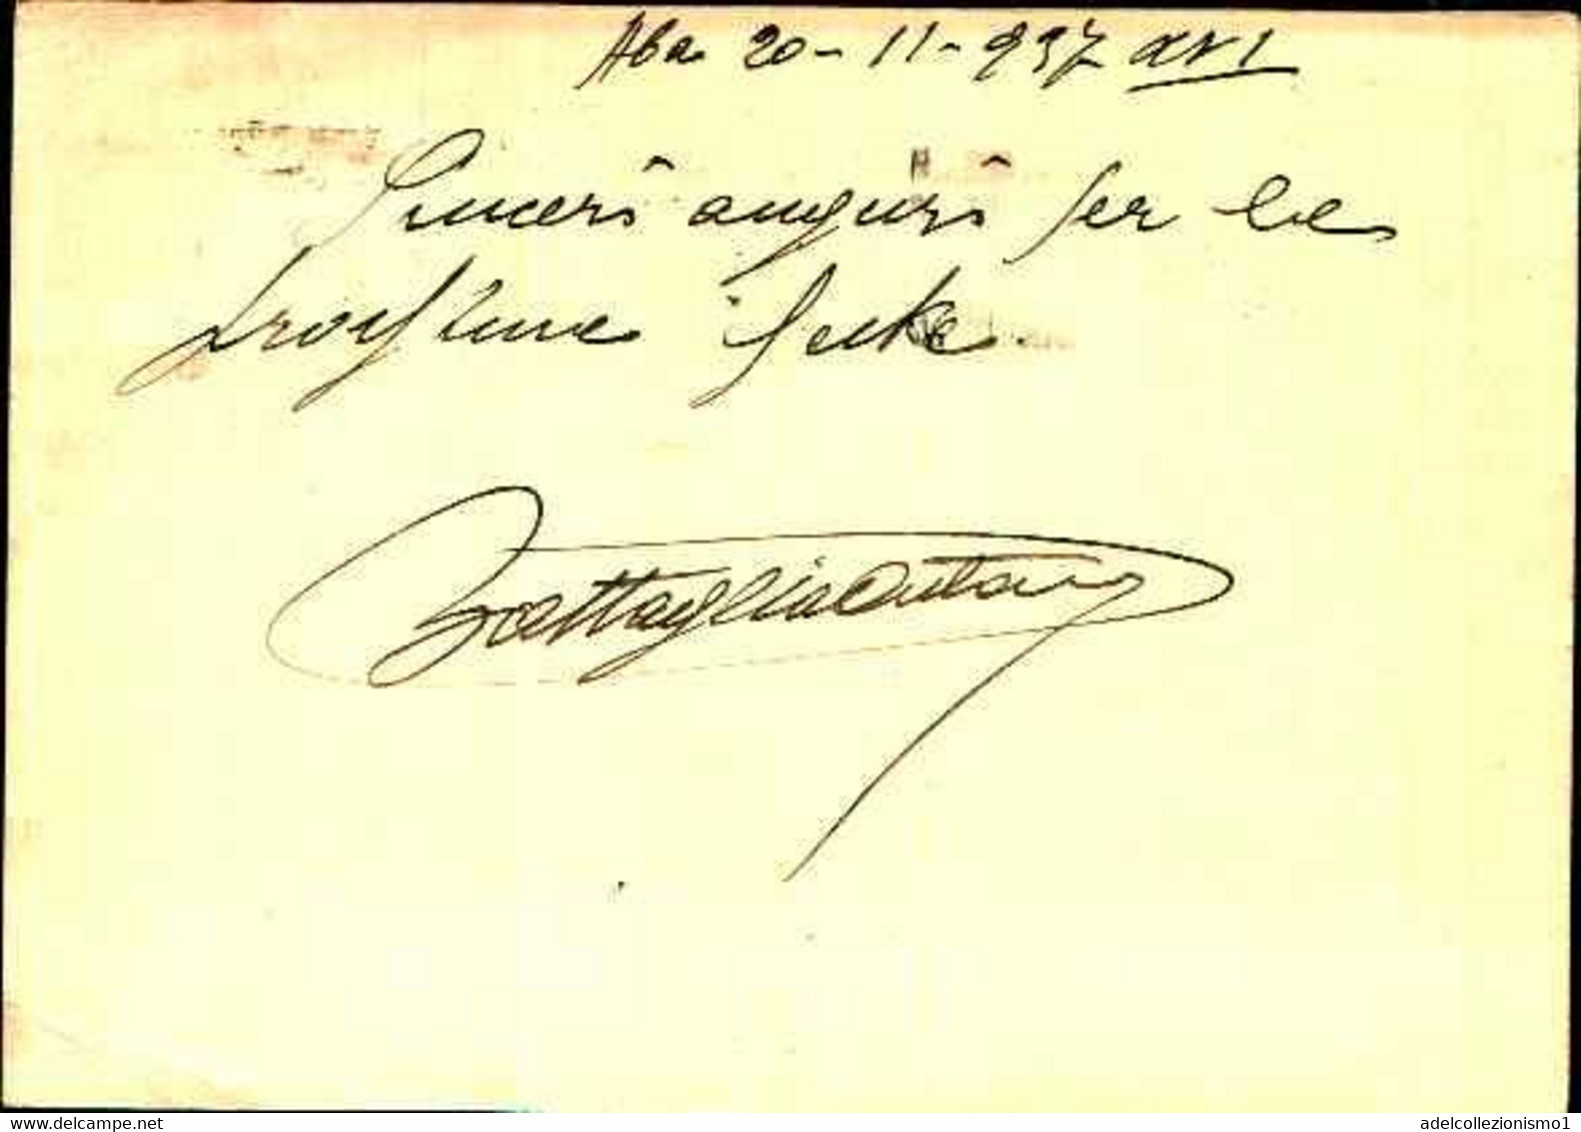 Aba 20-11-937 XVI
Sinceri auguri per le
prossime feste
Battaglia Antonio
adelcollezionismo1